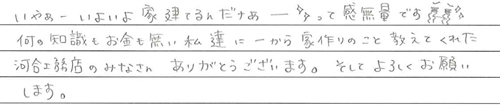 いやぁー いよいよ 家 建てるんだなぁ ー って 感無量です
何の知識もお金も無い私達に一から家作りのこと教えてくれた
河合工務店のみなさん ありがとうございます。そして よろしく お願い
します。